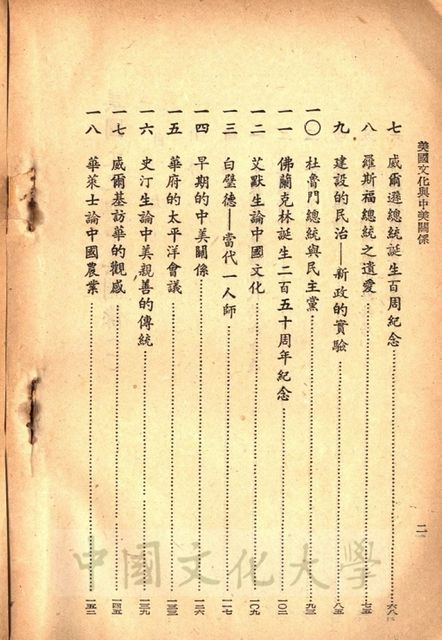 美國文化與中美關係
二
七 威爾遜總統誕生百周紀念……六八
八 羅斯福總統之遺愛……七五
九 建設的民治——新政的實驗……八五
一〇 杜魯門總統與民主黨……九三
一一 佛蘭克林誕生二百五十周年紀念……一〇二
一二 艾默生論中國文化……一〇九
一三 白璧德——當代一人師……一一七
一四 早期的中美關係……一二六
一五 華府的太平洋會議……一三三
一六 史汀生論中美親善的傳統……一三九
一七 威爾基訪華的觀感……一四五
一八 華萊士論中國農業……一五二
中國文化大學